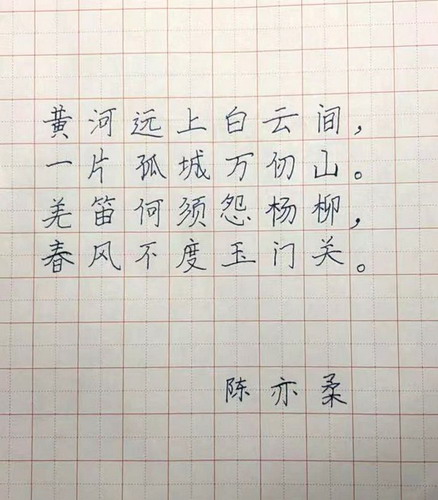 黄河远上白云间，
一片孤城万仞山。
羌笛何须怨杨柳，
春风不度玉门关。
陈亦柔